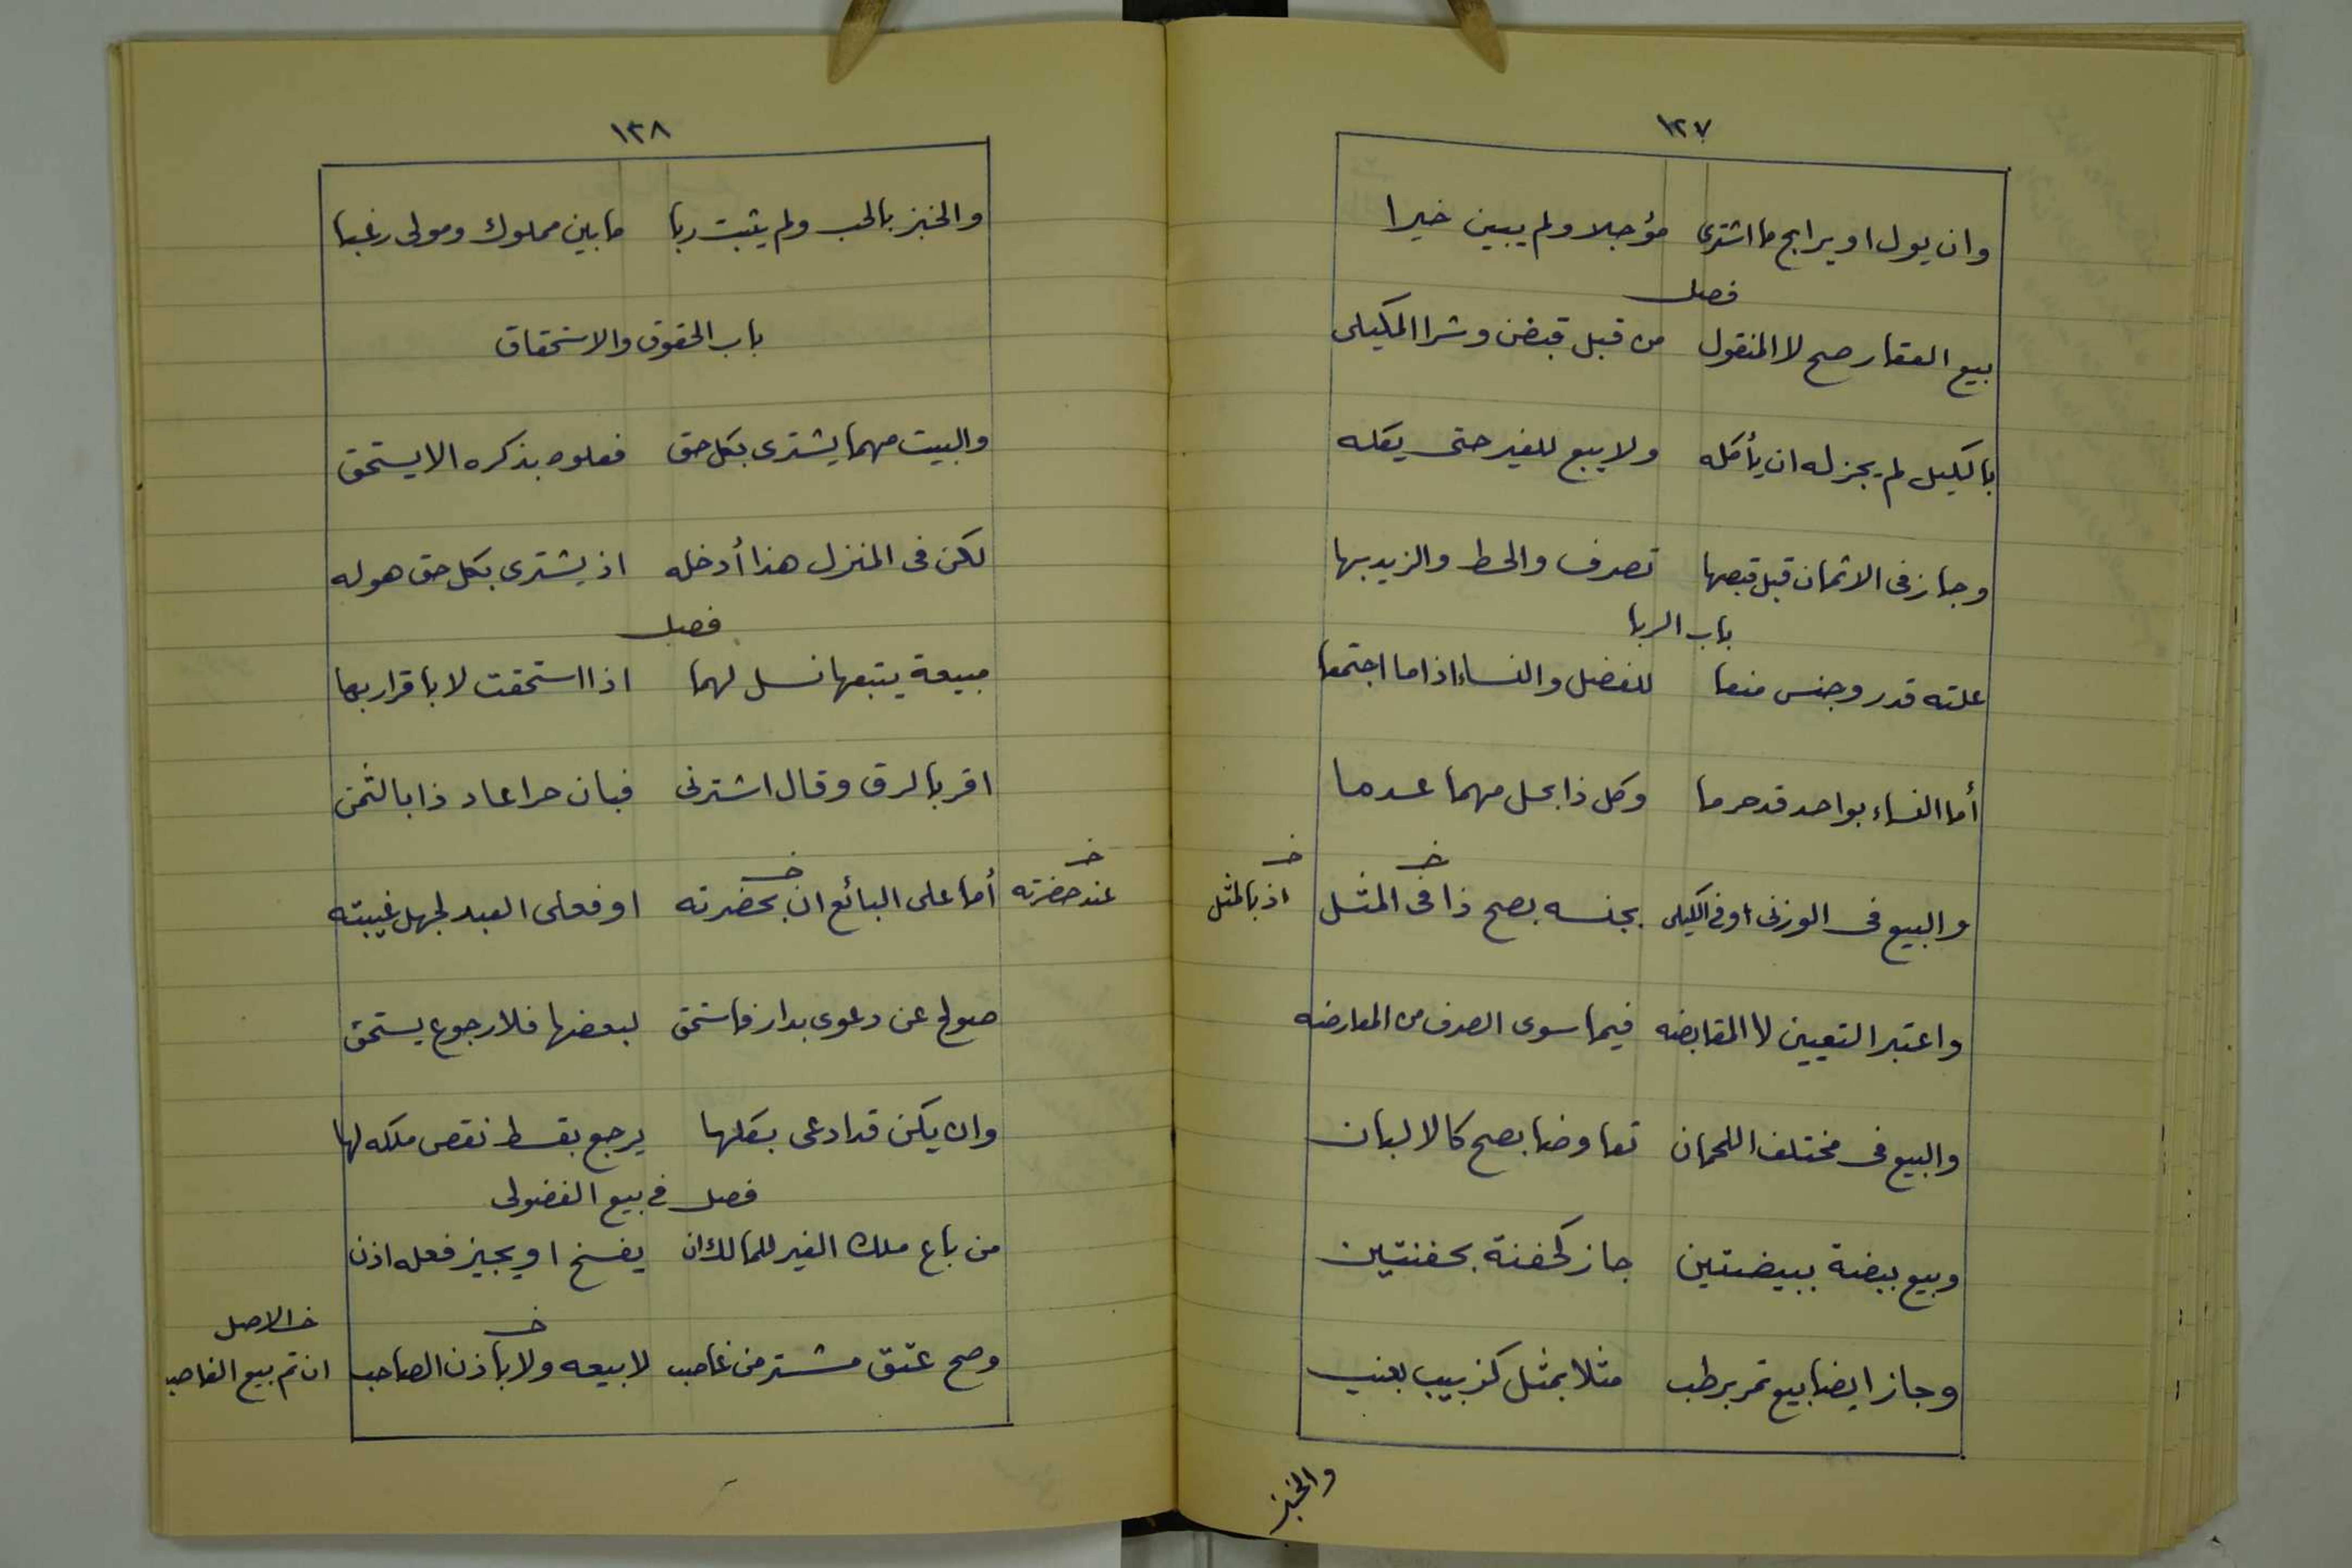 ١٢٧
وان يول او يرابح ما اشترى مؤجلا ولم يبين خيرا
فصل
بيع العقار صح لا المنقول من قبل قبض وشرا المكيلى
بالكيل لم يجز له ان يأكله ولا يبع للغير حتى يكله
وجاز فى الاثمان قبل قبصها تصرف والحط والزيد بها
باب الربا
علته قدر وجنس منعا للفضل والنساء اذا ما اجتمعا
أما النساء بواحد قد حرما وكل ذا بحل مهما عدما
والبيع فى الوزنى او فى الكيلى بجنسه بصح ذا فى المثل
خـ
اذ بالمثل
خـ
واعتبر التعيين لا المقابضه فيما سوى الصرف من المعارضه
والبيع فى مختلف اللحمان تعاوضا بصح كالالبان
وبيع بيضة ببيضتين جاز كحفنة بحفنتين
وجاز ايضا بيع تمر برطب مثلا بمثل كزبيب بعنب
والخبز
١٣٨
والخبز بالحب ولم يثبت ربا ما بين مملوك ومولى رغبا
باب الحقوق والاستحقاق
والبيت مهما يشترى بكل حق فعلوه بذكره الا يستحق
لكن فى المنزل هذا أدخله اذ يشترى بكل حق هو له
فصل
مبيعة يتبعها نسل لهما اذا استحقت لا باقرار بها
اقر بالرق وقال اشترنى فبان حرا عاد ذا بالثمن
خـ
عند حضرته
خـ
أما على البائع ان بحضرته او فعلى العبد لجهل غيبته
صولح عن دعوى بدار فاستحق لبعضها فلا رجوع يستحق
وان يكن قد ادعى بكلها يرجع بقسط نقص ملكه لها
فصل فى بيع الفضولى
من باع ملك الغير للمالك ان يفسخ او يجيز فعله اذن
خـ
وصح عتق مشتر من غاصب لا بيعه ولا باذن الصاحب
خـ الاصل
ان تم بيع الغاصب